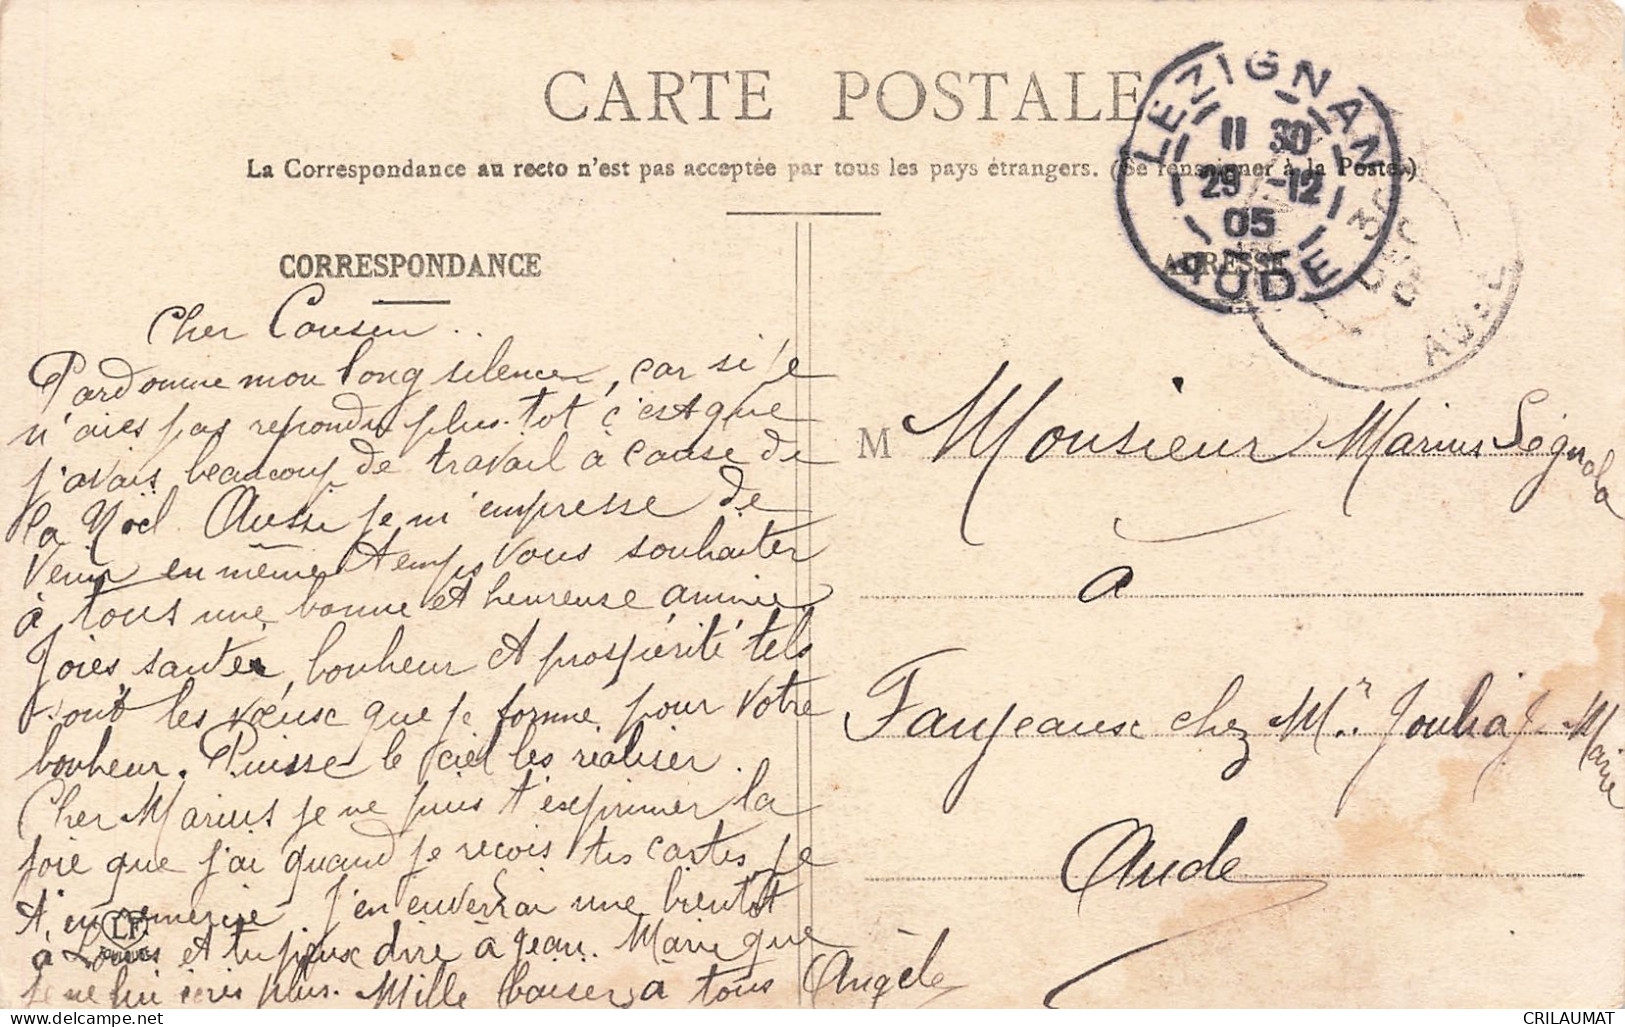 CARTE POSTALE
La Correspondance au recto n'est pas acceptée par tous les pays étrangers. (Se renseigner à la Poste.)
CORRESPONDANCE
Cher Cousin..
Pardonne mon long silence, car si je
n'aies pas repondu plus tot c'est que
j'avais beaucoup de travail à cause de
la Noël. Aussi je m'empresse de
venir en même temps vous souhaiter
à tous une bonne et heureuse année
Joies santé, bonheur et prospérité tels
sont les vœux que je forme pour votre
bonheur. Puisse le ciel les réaliser.
Cher Marius je ne puis t'exprimer la
joie que j'ai quand je reçois tes cartes je
t'en remercie J'en enverrai une bientôt
à Louis et tu peux dire à Jean. Marie que
je ne lui écris plus. Mille baisers à tous Angèle
LF
LEZIGNAN
11 30
29 -12
05
AUDE
30
DEC
05
AUDE
ADRESSE
M Monsieur Marius Ségnala
à
Fanjeaux chez Mr. Joulia J. Marie
Aude
CRILAUMAT